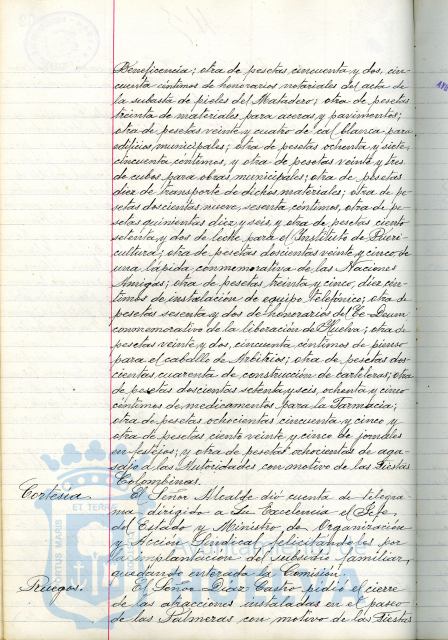 Beneficencia; otra de pesetas cincuenta y dos, cin-
cuenta céntimos de honorarios notariales del acta de
la subasta de pieles del Matadero; otra de pesetas
treinta de materiales para aceras y pavimentos;
otra de pesetas veinte y cuatro de cal blanca para
edificios municipales; otra de pesetas ochenta y siete,
cincuenta céntimos, y otra de pesetas veinte y tres
de cubos para obras municipales; otra de pesetas
diez de transporte de dichos materiales; otra de pe-
setas doscientas nueve, sesenta céntimos, otra de pe-
setas quinientas diez y seis y otra de pesetas ciento
setenta y dos de leche para el Instituto de Pueri-
cultura; otra de pesetas doscientas veinte y cinco de
una lápida conmemorativa de las Naciones
Amigas; otra de pesetas treinta y cinco, diez cén-
timos de instalación de equipo telefónico; otra de
pesetas sesenta y dos de honorarios del Te-Deum
conmemorativo de la liberación de Huelva; otra de
pesetas veinte y dos, cincuenta céntimos de pienso
para el caballo de Arbitrios; otra de pesetas dos-
cientas cuarenta de construcción de carteleras; otra
de pesetas doscientas setenta y seis, ochenta y cinco
céntimos de medicamentos para la Farmacia;
otra de pesetas ochocientas cincuenta y cinco y
otra de pesetas ciento veinte y cinco de jornales
en festejos; y otra de pesetas ochocientas de aga-
sajo a las Autoridades con motivo de las Fiestas
Colombinas.
Cortesía. El Señor Alcalde dió cuenta de telegra-
ma dirigido a Su Excelencia el Jefe
del Estado y Ministro de Organización
y Acción Sindical felicitándoles por
la implantación del subsidio familiar,
quedando enterada la Comisión.
Ruegos. El Señor Díaz Castro pidió el cierre
de las atracciones instaladas en el paseo
de las Palmeras con motivo de las Fiestas
PORTUS MARIS ET TERRAE
Ayuntamiento de
HUELVA